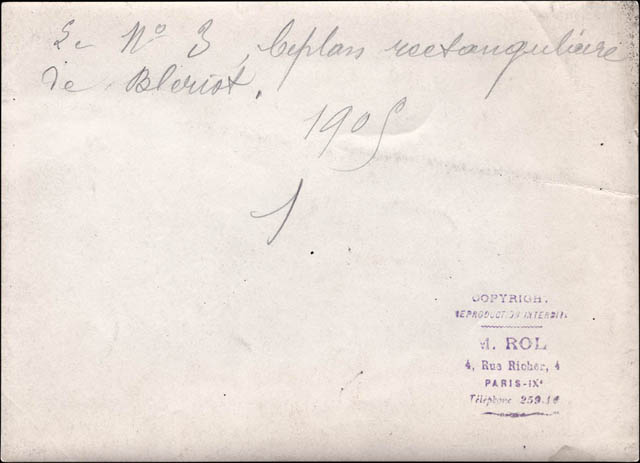 Le No 3, biplan rectangulaire
de Blériot.
1905
1
COPYRIGH.
REPRODUCTION INTERDIT
M. ROL
4, Rue Richer, 4
PARIS-IXe
Téléphone 259.16